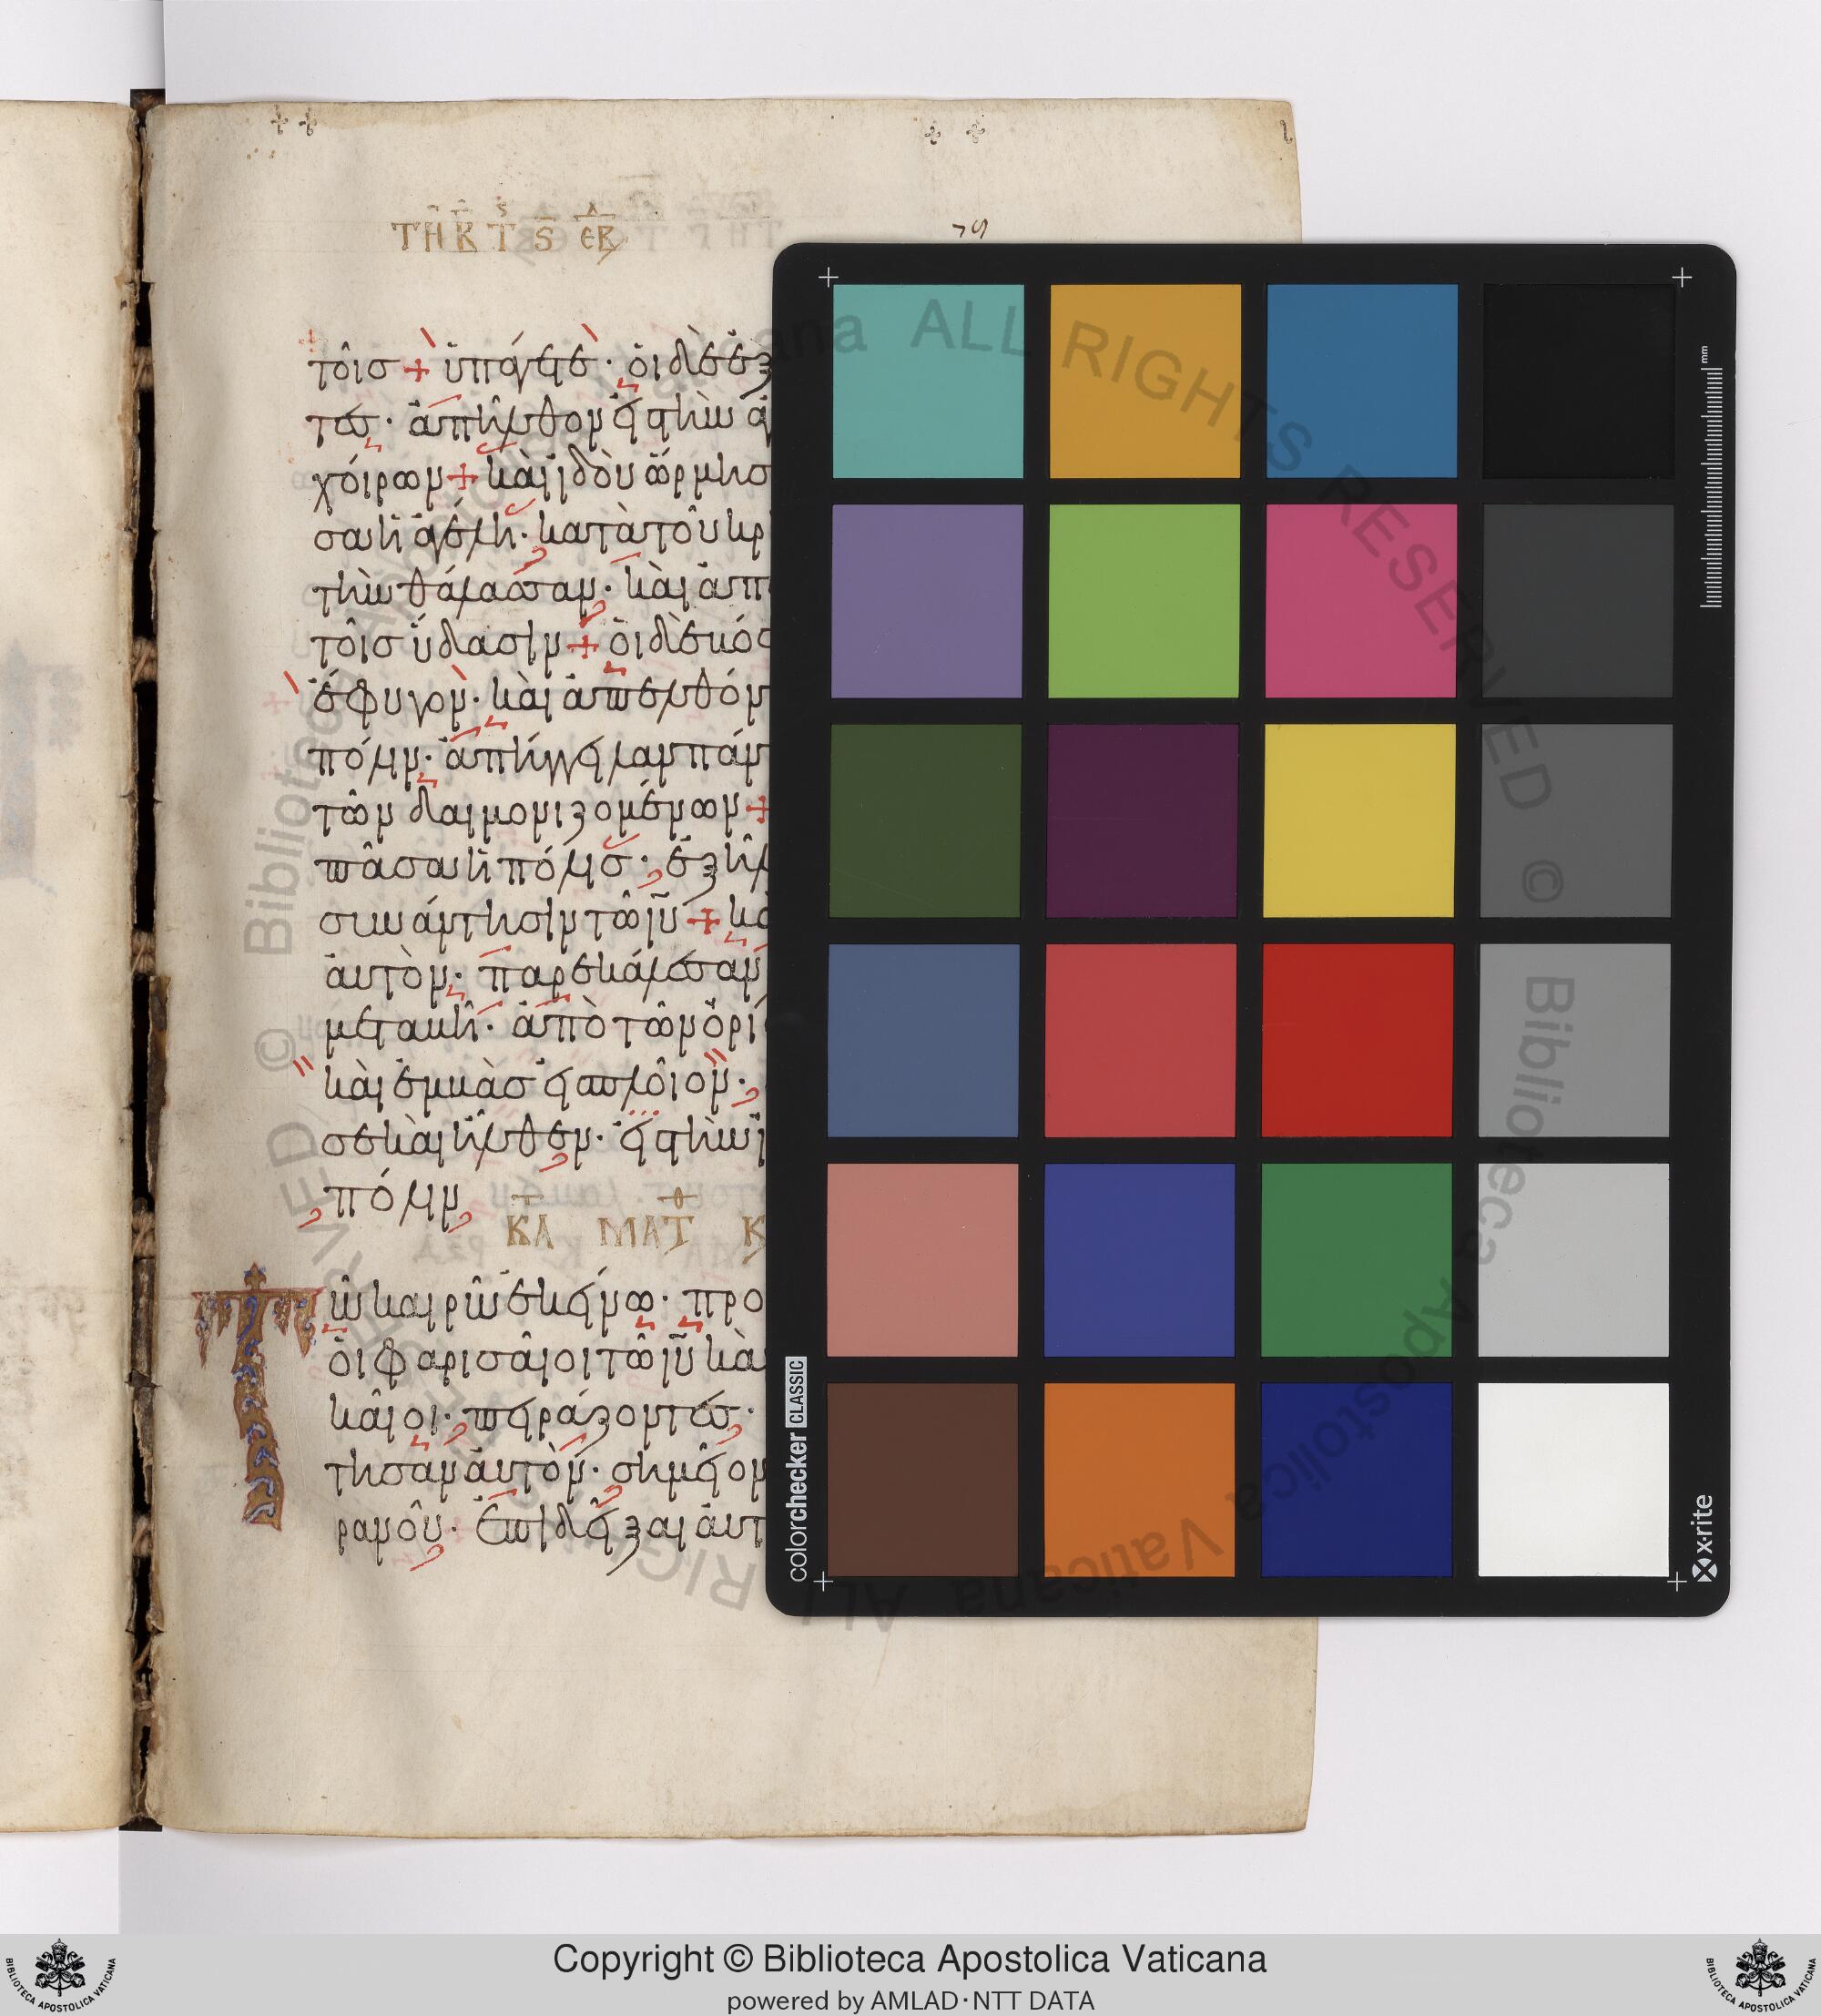 ΤΗ Β Τ S ΕΒ
79
τοῖσ + ὑπάγετε· οἱ δὲ ἐξ
τεσ· ἀπῆλθον εἰς τὴν ἀ
χοίρων + καὶ ἰδοὺ ὥρμησ
σα ἡ ἀγέλη· κατὰ τοῦ κρ
τὴν θάλασσαν· καὶ ἀπ
τοῖσ ὕδασιν + οἱ δὲ βόσ
ἔφυγον· καὶ ἀπελθόν
πόλιν· ἀπήγγειλαν πάν
τῶν δαιμονιζομένων +
πᾶσα ἡ πόλισ· ἐξῆλ
συνάντησιν τῶ ιυ + κα
αὐτὸν· παρεκάλεσαν
μεταβῆ· ἀπὸ τῶν ὁρί
καὶ ἐμβὰσ εἰς πλοῖον·
σε καὶ ἦλθεν· εἰς τὴν ἰ
πόλιν
ΚΑ ΜΑΤΘ Κ
Τῶ καιρῶ ἐκείνω· προ
οἱ φαρισαῖοι τῶ ιυ κα
καῖοι· πειράζοντεσ·
τησαν αὐτὸν· σημεῖον
ρανοῦ· ἐπιδεῖξαι αὐτ
colorchecker CLASSIC
x·rite
mm
© Biblioteca Apostolica Vaticana ALL RIGHTS RESERVED
© Biblioteca Apostolica Vaticana ALL RIGHTS RESERVED
Copyright © Biblioteca Apostolica Vaticana
powered by AMLAD·NTT DATA
BIBLIOTECA APOSTOLICA VATICANA
BIBLIOTECA APOSTOLICA VATICANA